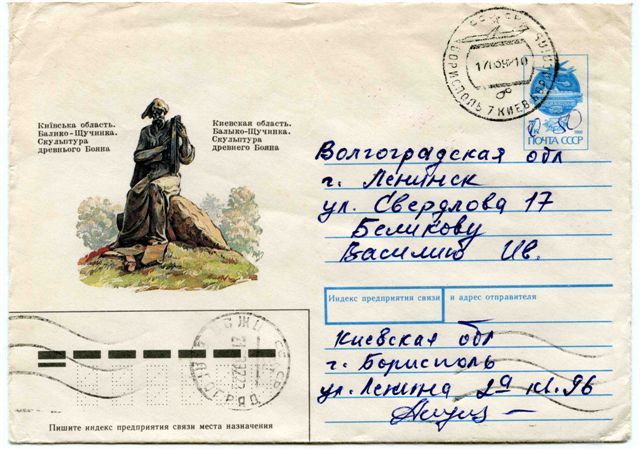 Київська область.
Балико-Щучинка.
Скульптура
древнього Бояна
Киевская область.
Балыко-Щучинка.
Скульптура
древнего Бояна
БОРИСПОЛЬ 7 КИЕВ
ПОЧТА СССР
Волгоградская обл
г. Ленинск
ул. Свердлова 17
Беликову
Василию Ив.
Индекс предприятия связи и адрес отправителя
Киевская обл
г. Борисполь
ул. Ленина 2а кв. 96
Пишите индекс предприятия связи места назначения